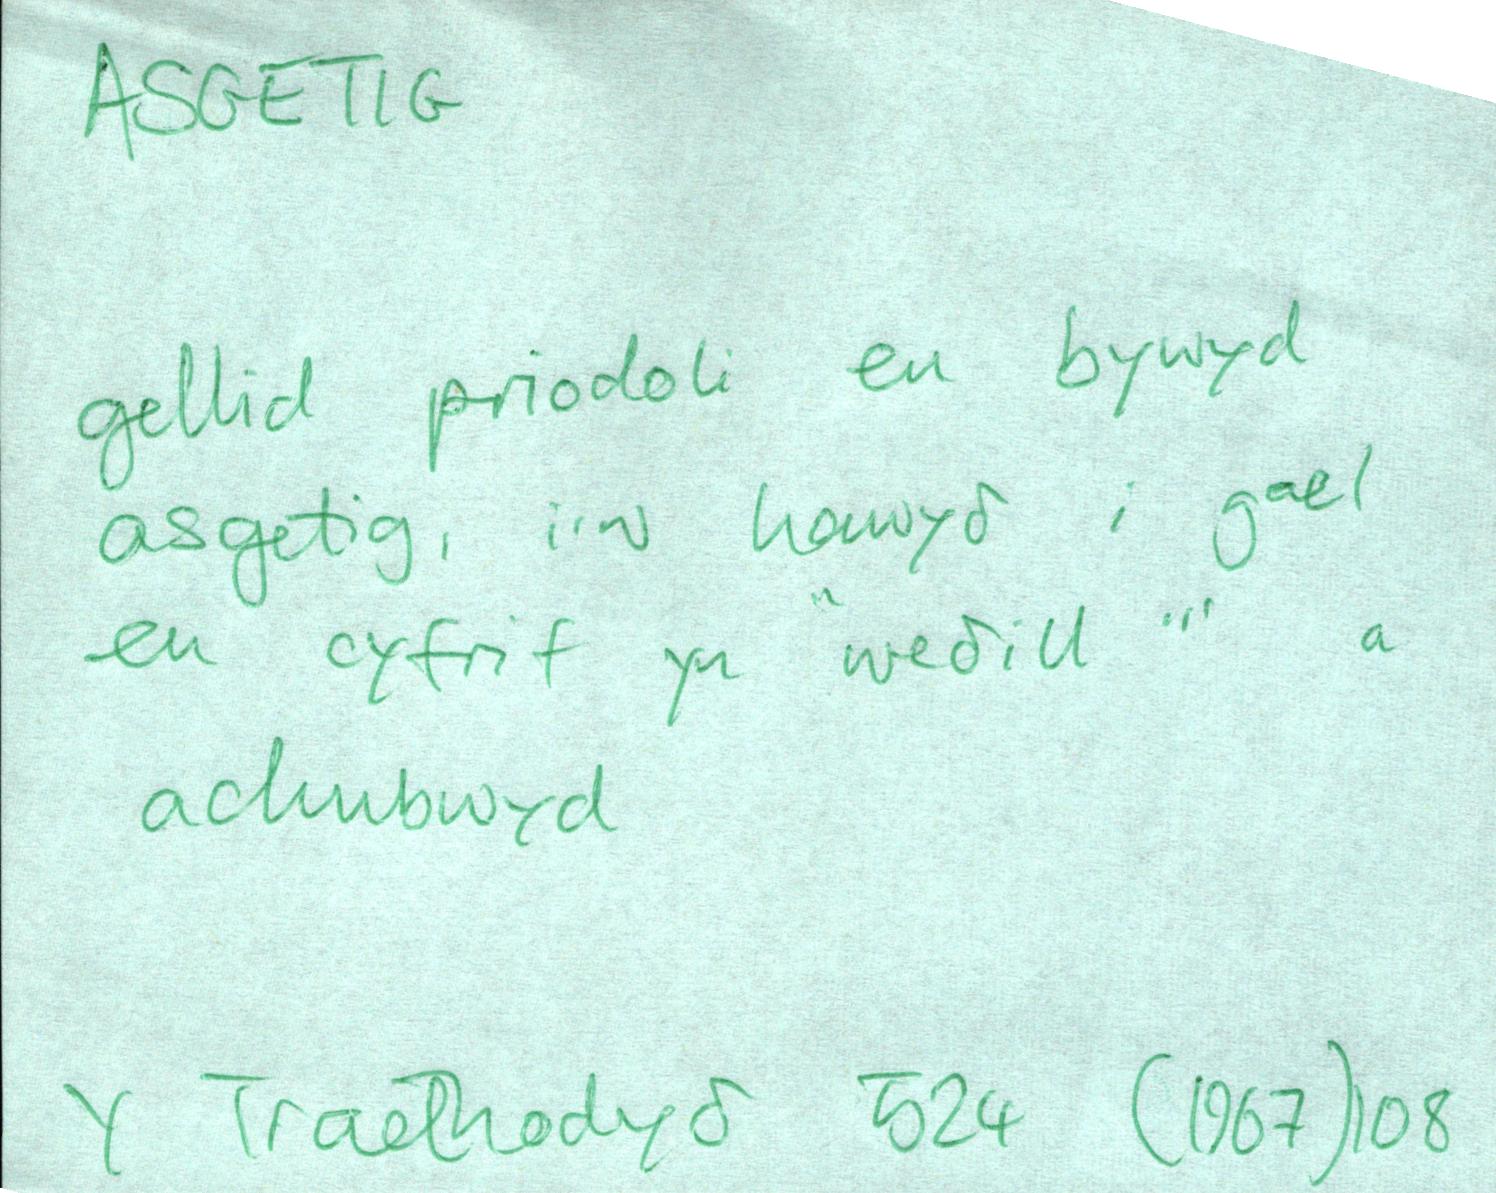 ASGETIG
gellid priodoli eu bywyd
asgetig, i'w hawyδ i gael
eu cyfrif yn "weδill "' a
achubwyd
Y Traethodyδ 524 (1967) 108